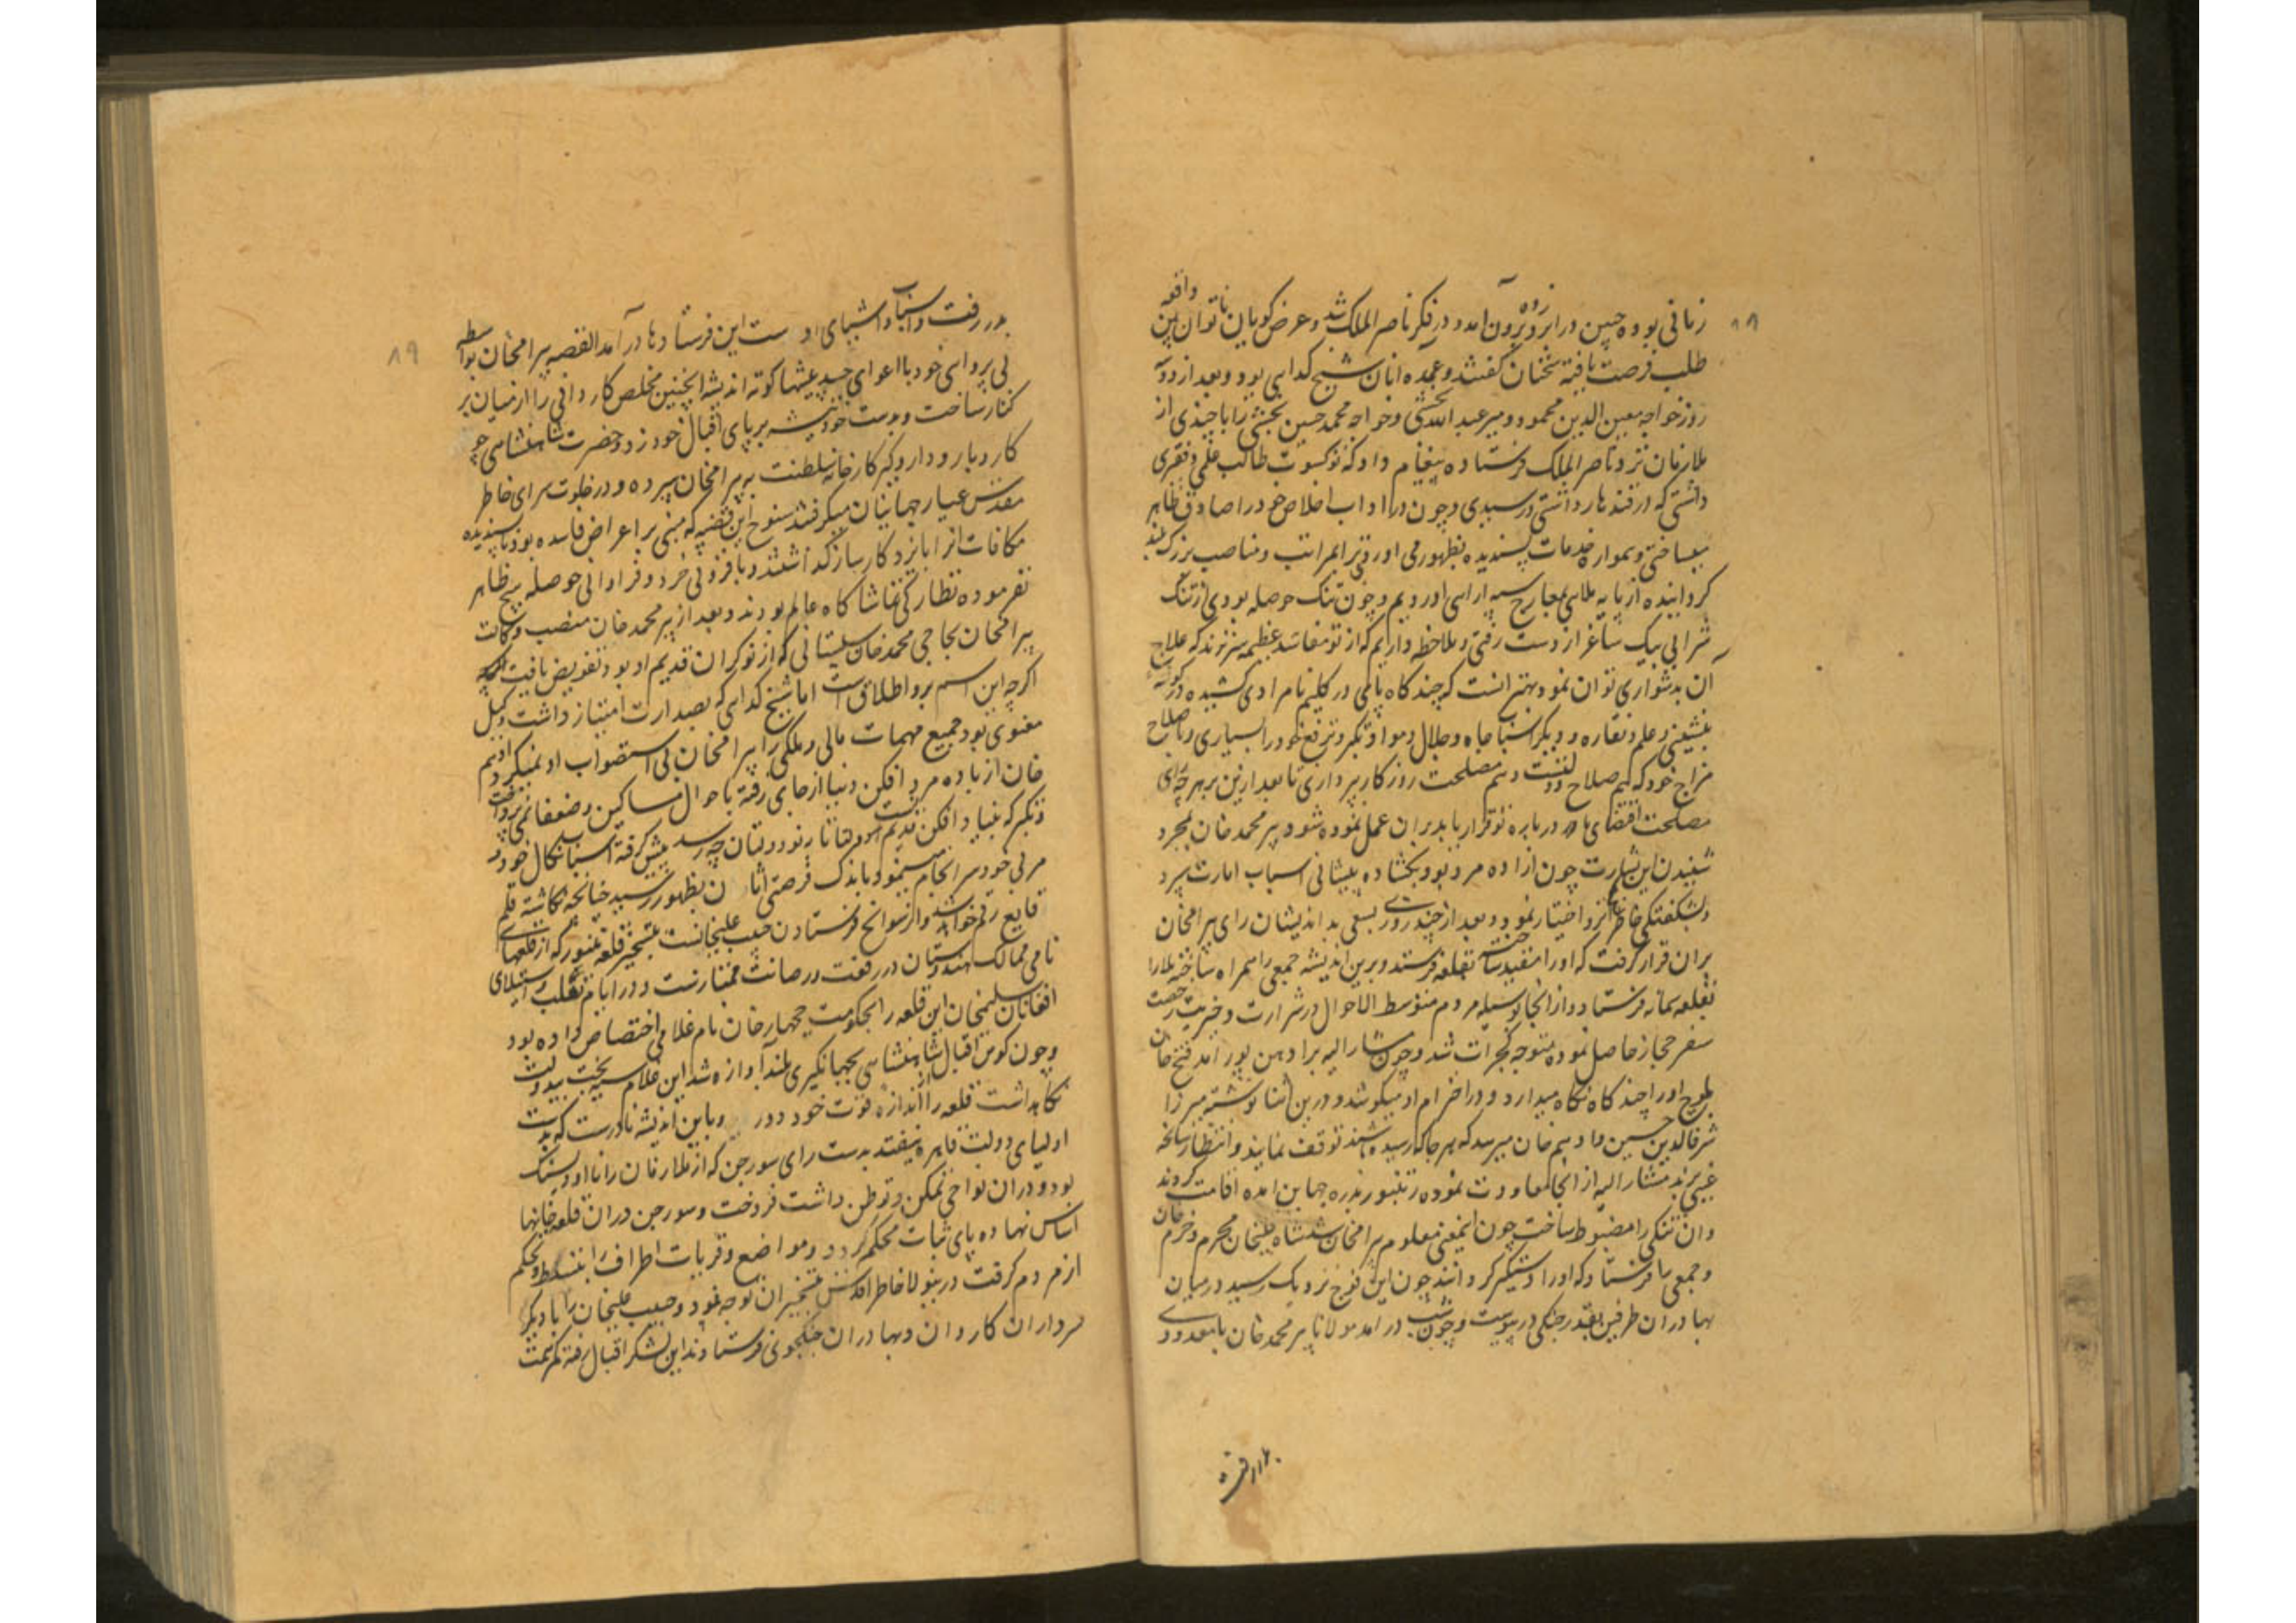 ۸۸
زمانی بوده چین در ابرو زده بیرون آمد و در فکر ناصر الملک شد و عرض کویان ناتوان بین واقعه
طلب فرصت یافته سخنان کفتند و عمده آنان شیخ کدایی بود و بعد از دو
روز خواجه معین الدین محمود و میر عبد الله بخشی و خواجه محمد حسین بخشی را با چندی از
ملازمان نزد ناصر الملک فرستاده پیغام داد که تو کسوت طالب علمی و فقری
داشتی که از قندهار رسیدی و چون در آداب اخلاص خود را صادق ظاهر
میساختی و هموار خدمات پسندیده بظهور می اوردی ترا بمراتب و مناصب بزرک بلند
کردانیده از پایه ملایی بمعارج سپه ارایی اوردیم و چون تنک حوصله بودی از تنک
شرابی بیک ساغر از دست رفتی و ملاحظه داریم که از تو مفاسد عظیمه سر زند که علاج
آن بدشواری توان نمود بهتر انست که چند کاه پای در کلیم نامرادی کشیده در کوشه
بنشینی و علم و نقاره و دیکر اسباب جاه و جلال و مواد تکبر و ترفع خود را بسپاری و باصلاح
مزاج خود که هم صلاح وقت و هم مصلحت روزکار پردازی تا بعد ازین بهر چه رای
مصلحت اقتضای ما در باره تو قرار یابد بران عمل نموده شود پیر محمد خان بمجرد
شنیدن این بشارت چون ازاده مرد بود بکشاده پیشانی اسباب امارت سپرد
و بشکفتکی خاطر انزوا اختیار نمود و بعد از چند روزی بسعی بد اندیشان رای بیرامخان
بران قرار کرفت که اورا مقید ساخته بقلعه فرستد و برین اندیشه جمعی را همراه ساخته ملا را
بقلعه بیانه فرستاد و از انجا بوسیله مردم متوسط الاحوال در شرارت و خیریت رخصت
سفر حجاز حاصل نموده متوجه کجرات شد و چون مشار الیه برادهن پور امد فتح خان
بلوچ اورا چند کاه نکاه میدارد و در احترام او میکوشد و درین اثنا نوشته میرزا
شرف الدین حسین و ادهم خان میرسد که بهر جا که رسیده باشند توقف نمایند و انتظار سانحه
غیبی برند مشار الیه از انجا معاودت نموده رنتنبور بدره جهاین امده اقامت کردند
وان تنکی را مضبوط ساخت چون اینمعنی معلوم بیرامخان شد شاه قلیخان محرم و خرم خان
و جمعی را فرستاد که اورا دستکیر کردانند چون این فوج نزدیک رسید در میان
بهادران طرفین بقدر جنکی در پیوست و چون شب در امد مولانا پیر محمد خان با معدودی
بدر رفته
۸۹
بدر رفت و اسباب و اشیای او بدست این فرستادها در آمد القصه بیرامخان بواسطه
بی پروایی خود با اغوای حسد پیشهاء کوته اندیشه اینچنین مخلص کاردانی را از میان بر
کنار ساخت و بدست خود تیشه بر پای اقبال خود زد و حضرت شاهنشاهی چون
کار و بار و دار و کیر کارخانه سلطنت به بیرامخان سپرده و در خلوت سرای خاطر
مقدس عیار جهانیان میکرفتند سنوح این قضیه که مبنی بر اعراض فاسده بود ناپسندیده
مکافات انرا بایزد کارساز کذاشتند و بافزونی خرد و فراوانی حوصله هیچ ظاهر
نفرموده نظارکی تماشا کاه عالم بودند و بعد از پیر محمد خان منصب وکالت
بیرامخان بحاجی محمد خان سیستانی که از نوکران قدیم او بود تفویض یافت
اکرچه این اسم برو اطلاق یافت اما شیخ کدایی که بصدارت امتیاز داشت وکیل
معنوی بود و جمیع مهمات مالی و ملکی را بیرامخان بی استصواب او نمیکرد و هم
خان از باده مرد افکن دنیا از جای رفته باحوال مساکین و ضعفا نمی پرداخت
و تکبر که بنیاد افکن قدیم ست پیش کرفته اسباب نکال خود و
مربی خود سرانجام مینمود باندک فرصتی اثار آن بظهور رسید چنانچه نکاشته قلم
وقایع رقم خواهد شد و از سوانح فرستادن حبیب علیخانست بتسخیر قلعه رنتنبور که از قلعهای
نامی ممالک هندوستان در رفعت و رصانت ممتازست و در ایام تغلب و استیلای
افغانان سلیمخان این قلعه را بحکومت جهجارخان نام غلامی اختصاص داده بود
و چون کوس اقبال شاهنشاهی بجهانکیری بلند آوازه شد این غلام سیه بخت بیدولت
نکاهداشت قلعه را اندازه قوت خود دور دید و باین اندیشه نادرست که بدست
اولیای دولت قاهره نیفتد بدست رای سورجن که از ملازمان رانا اودیسنک
بود و دران نواحی تمکن و توطن داشت فروخت و سورجن دران قلعه خانها
اساس نهاده پای ثبات محکم کرد و مواضع و قریات اطراف را بتسلط و تحکم
از مردم کرفت درینولا خاطر اقدس بتسخیر ان توجه نمود و حبیب علیخان را با دیکر
سرداران کاردان و بهادران جنکجوی فرستادند این لشکر اقبال رفته کمر همت